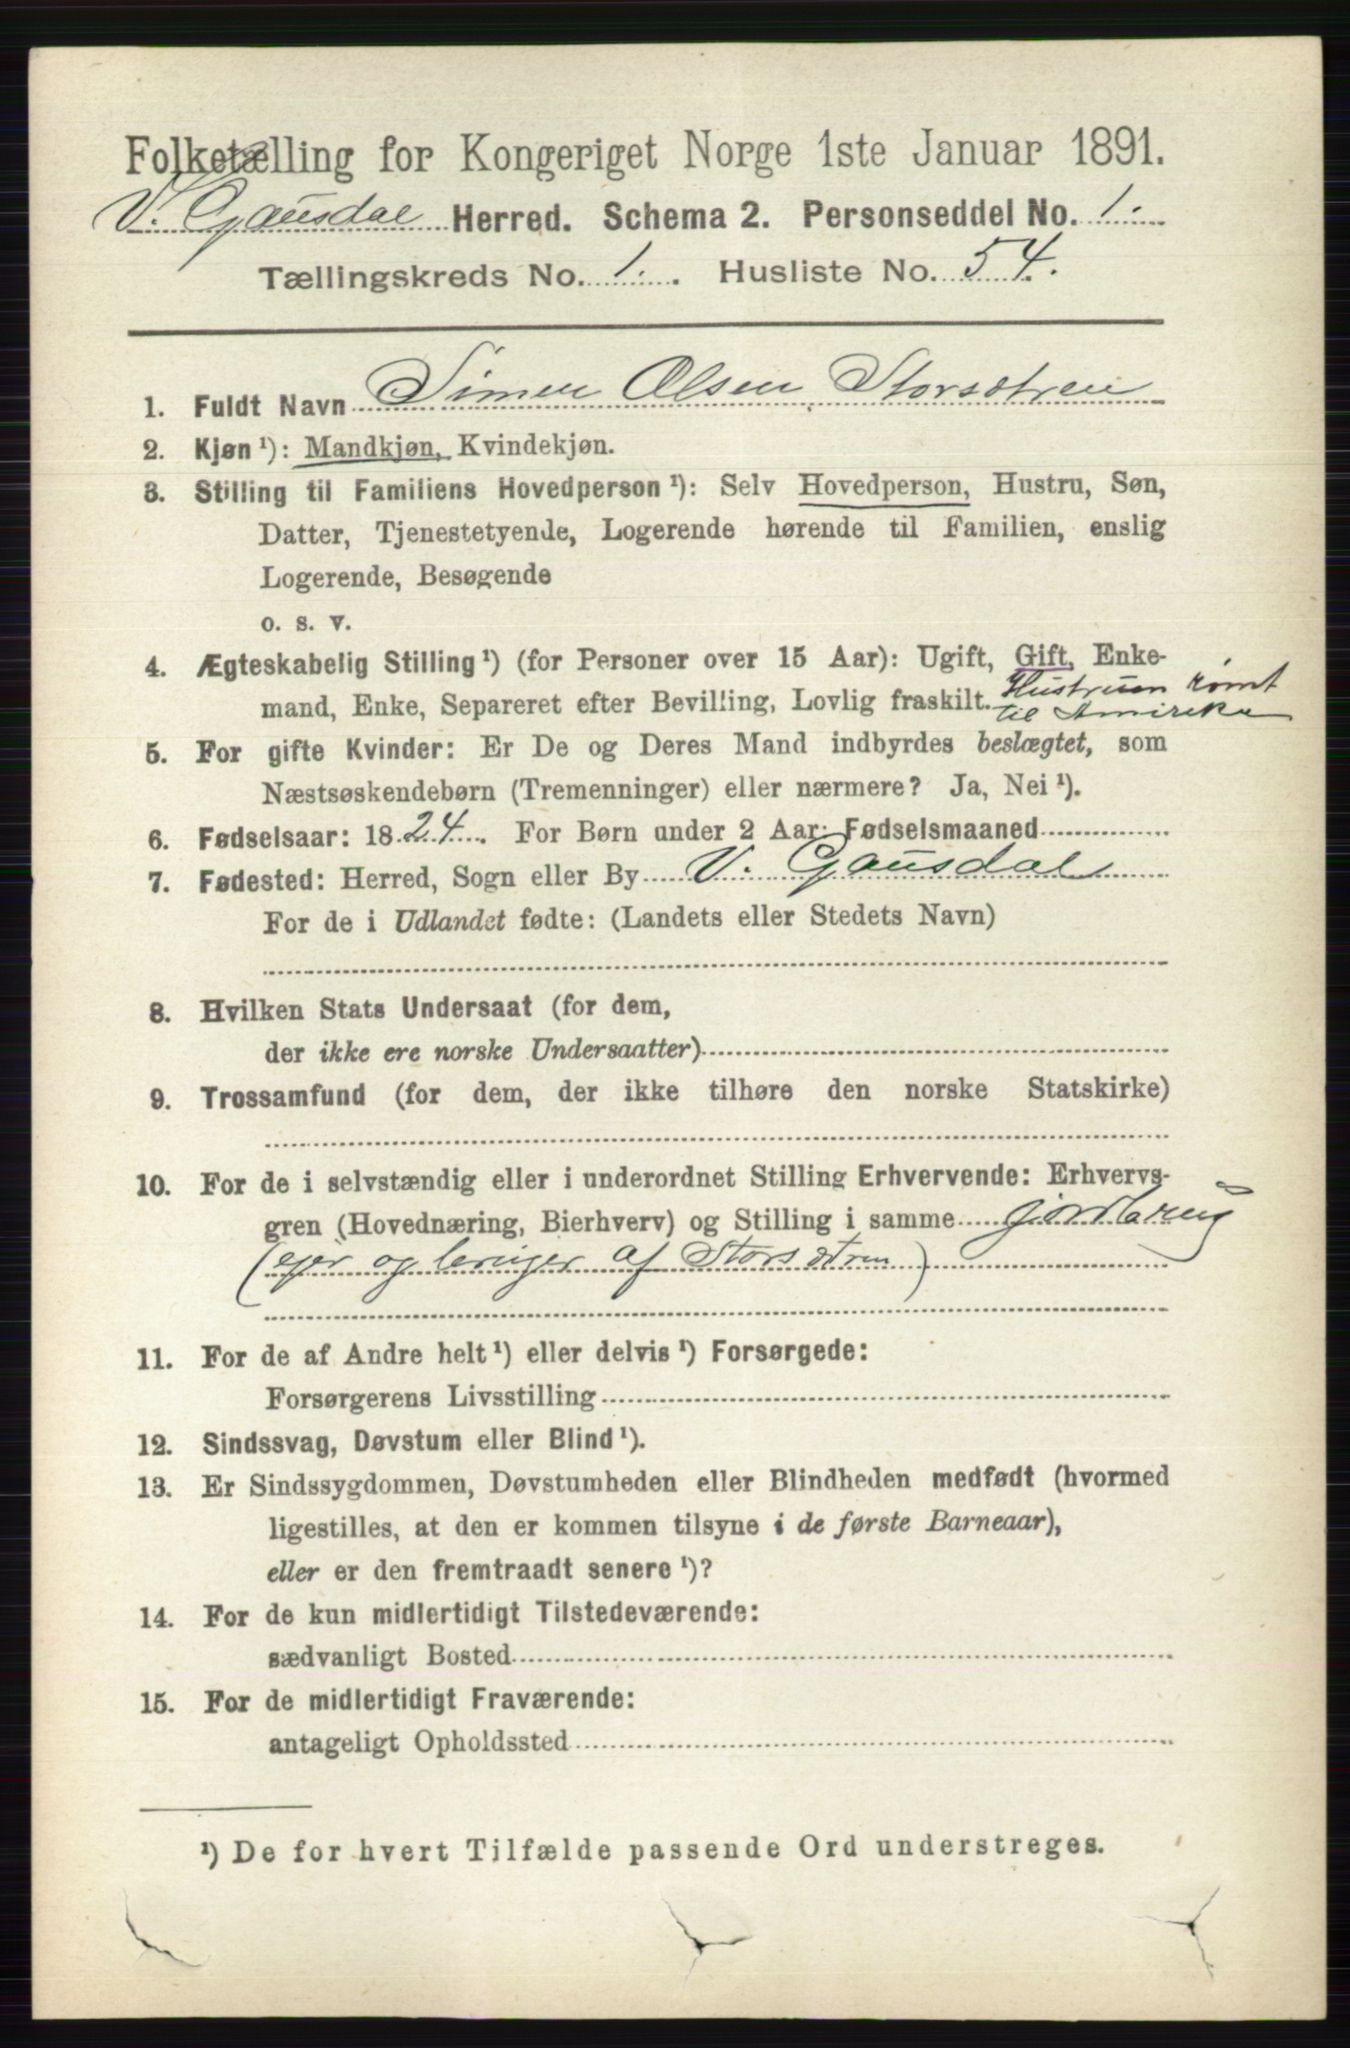 Folketælling for Kongeriget Norge 1ste Januar 1891.
V. Gausdal Herred. Schema 2. Personseddel No. 1.
Tællingskreds No. 1. Husliste No. 54.
1. Fuldt Navn Simen Olsen Storsætren
2. Kjøn¹): Mandkjøn, Kvindekjøn.
3. Stilling til Familiens Hovedperson¹): Selv Hovedperson, Hustru, Søn,
Datter, Tjenestetyende, Logerende hørende til Familien, enslig
Logerende, Besøgende
o. s. v.
4. Ægteskabelig Stilling¹) (for Personer over 15 Aar): Ugift, Gift, Enke-
mand, Enke, Separeret efter Bevilling, Lovlig fraskilt. Hustruen rømt
til Amirika
5. For gifte Kvinder: Er De og Deres Mand indbyrdes beslægtet, som
Næstsøskendebørn (Tremenninger) eller nærmere? Ja, Nei¹).
6. Fødselsaar: 1824. For Børn under 2 Aar: Fødselsmaaned
7. Fødested: Herred, Sogn eller By V. Gausdal
For de i Udlandet fødte: (Landets eller Stedets Navn)
8. Hvilken Stats Undersaat (for dem,
der ikke ere norske Undersaatter)
9. Trossamfund (for dem, der ikke tilhøre den norske Statskirke)
10. For de i selvstændig eller i underordnet Stilling Erhvervende: Erhvervs-
gren (Hovednæring, Bierhverv) og Stilling i samme jordbrug
(ejer og bruger af Storsætren)
11. For de af Andre helt¹) eller delvis¹) Forsørgede:
Forsørgerens Livsstilling
12. Sindssvag, Døvstum eller Blind¹).
13. Er Sindssygdommen, Døvstumheden eller Blindheden medfødt (hvormed
ligestilles, at den er kommen tilsyne i de første Barneaar),
eller er den fremtraadt senere¹)?
14. For de kun midlertidigt Tilstedeværende:
sædvanligt Bosted
15. For de midlertidigt Fraværende:
antageligt Opholdssted
¹) De for hvert Tilfælde passende Ord understreges.